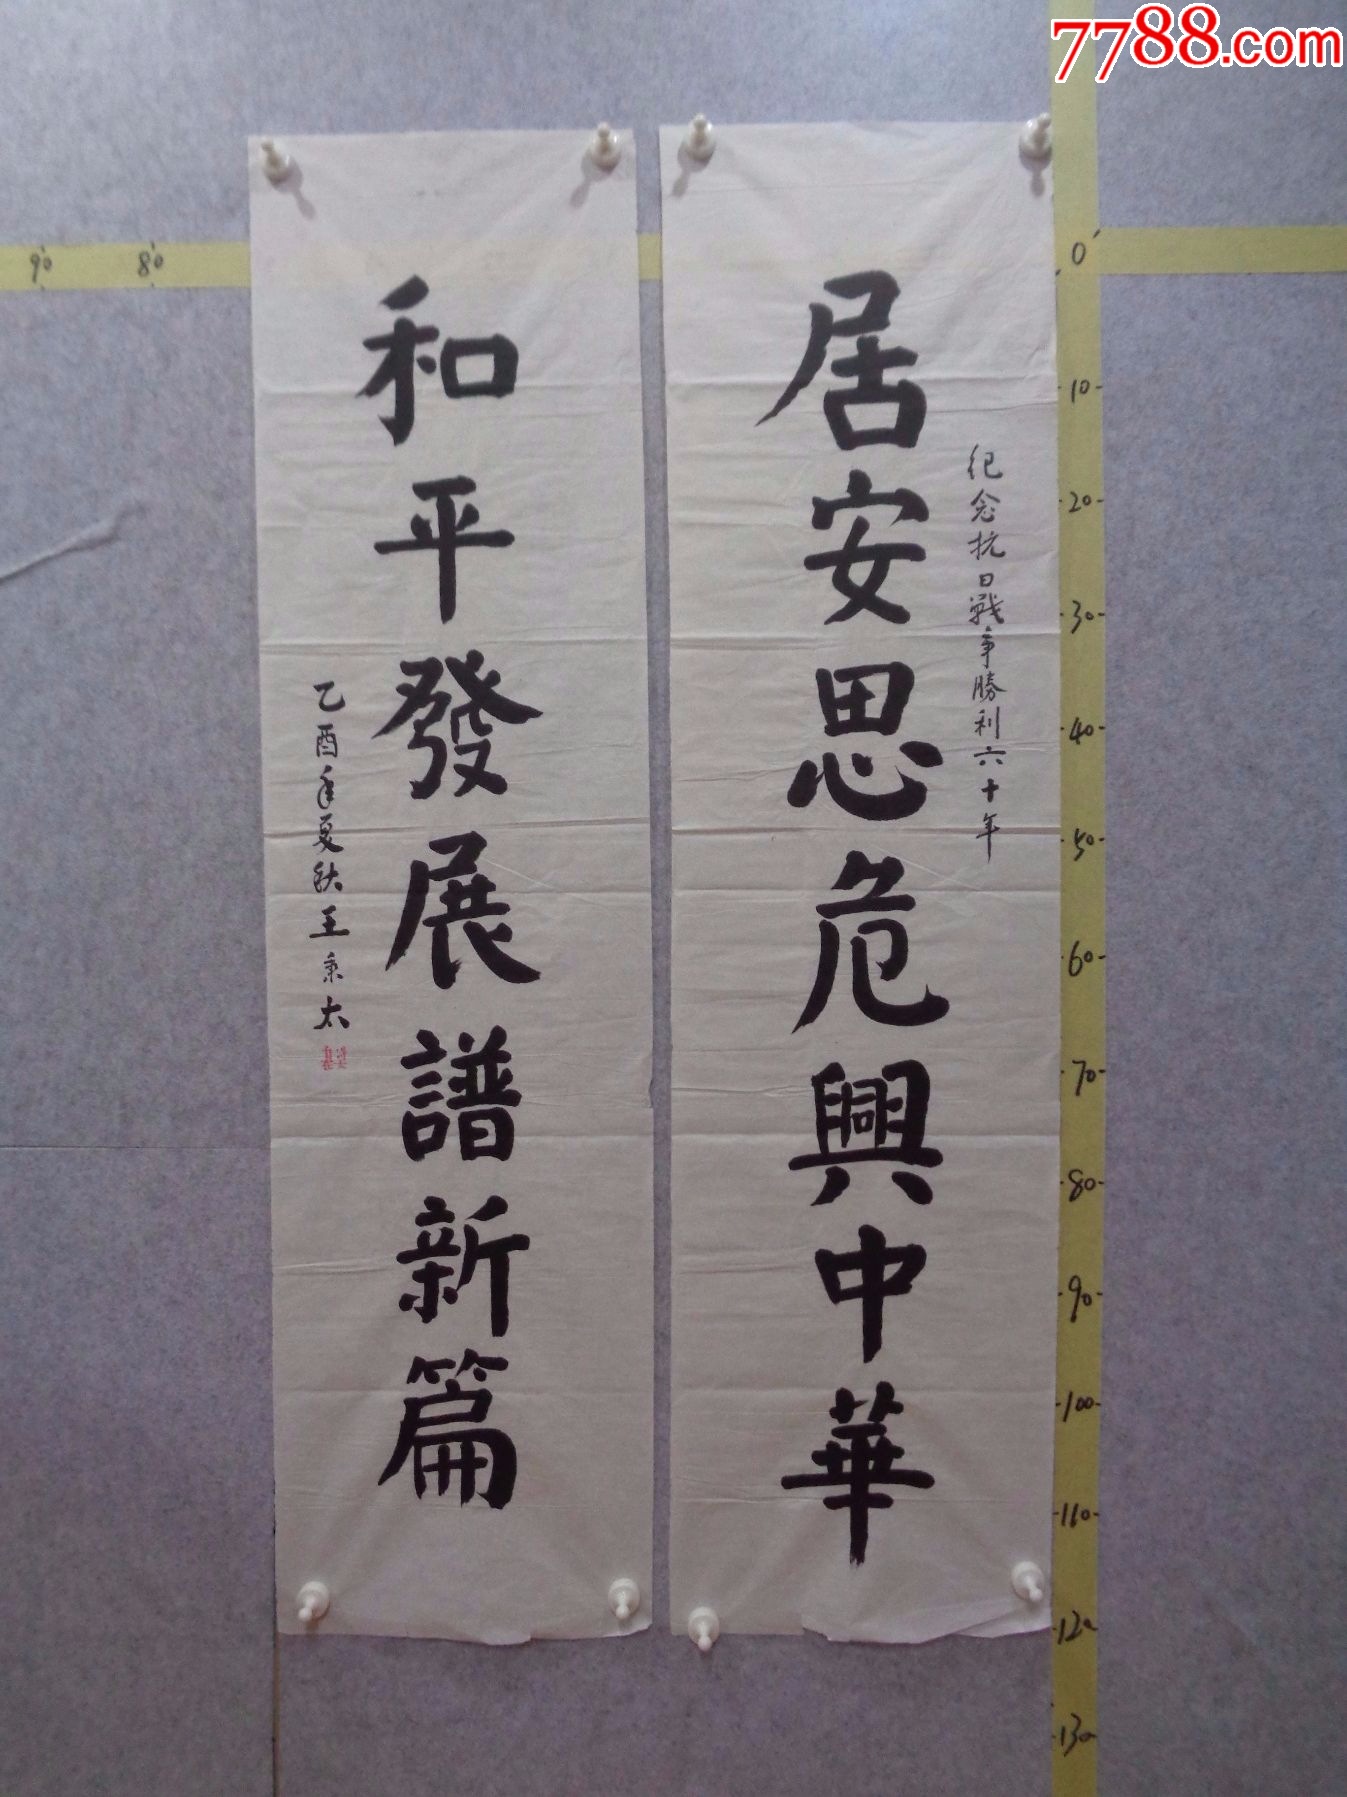 7788.com
居安思危興中華
紀念抗日戰爭勝利六十年
和平發展譜新篇
乙酉年夏秋王秉太
90 80
0
10
20
30
40
50
60
70
80
90
100
110
120
130